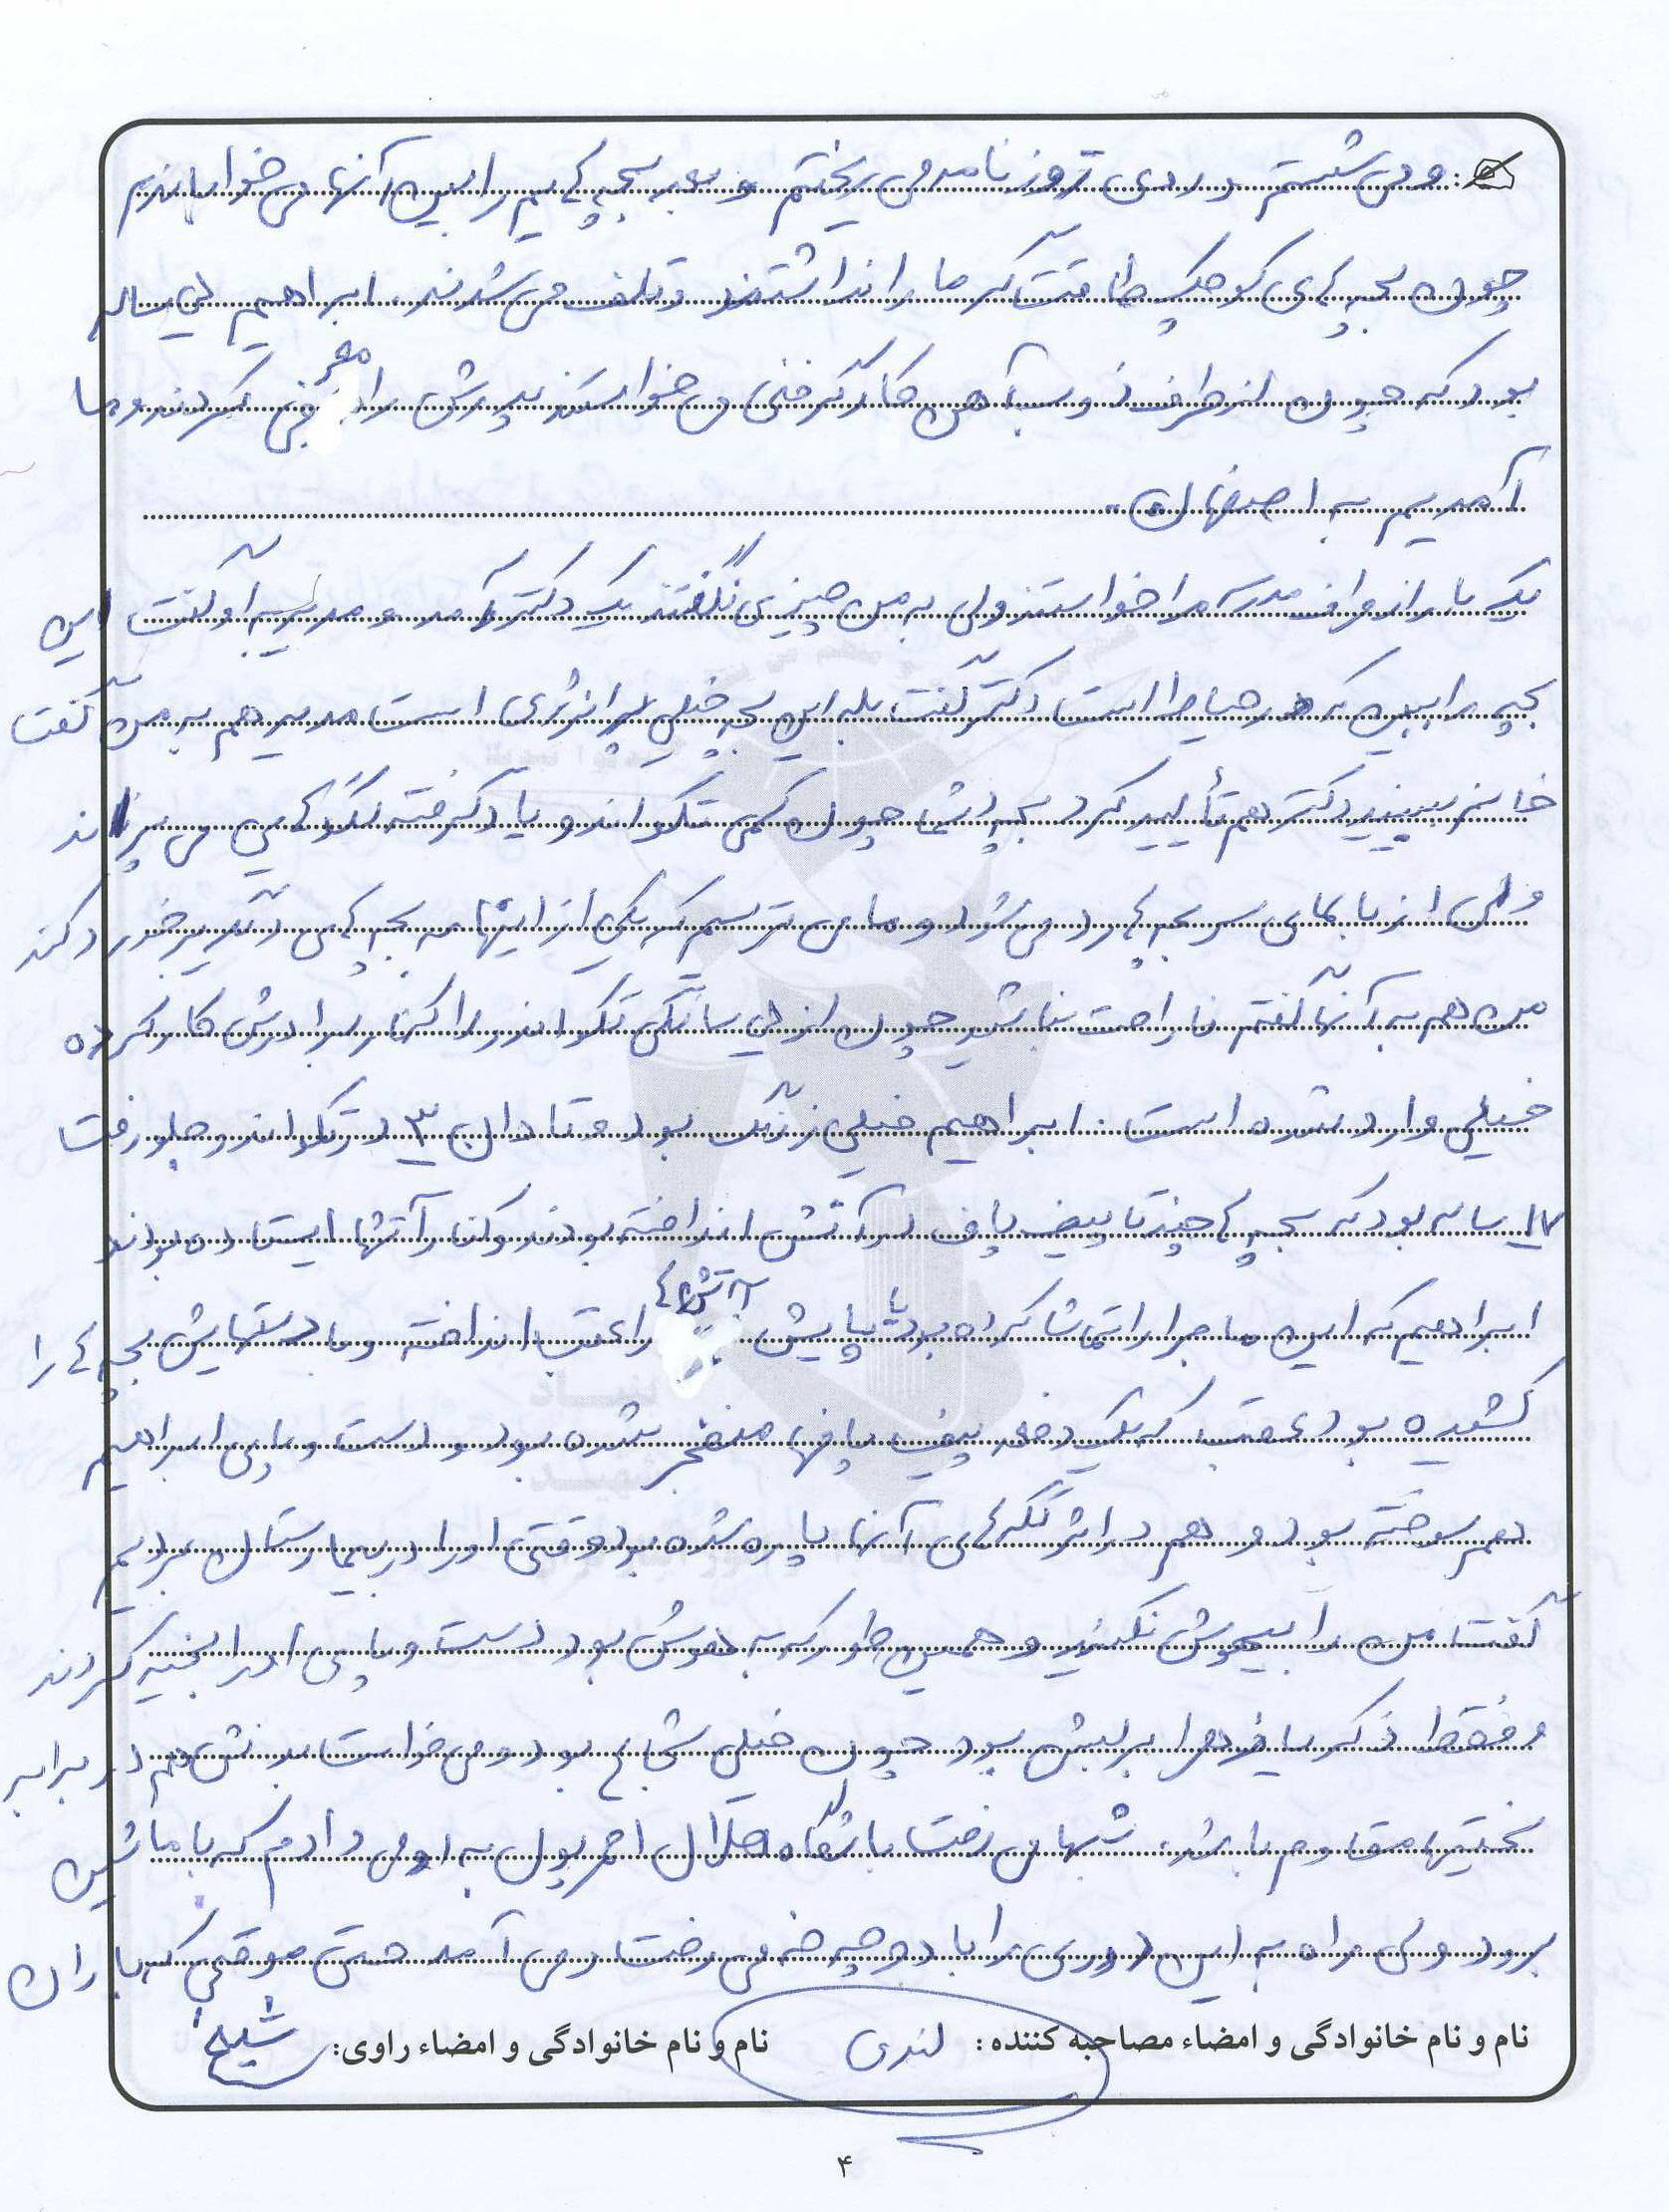 و می شستم و روی روزنامه می ریختم و بعد بچه هایم را بین آنها می خواباندم
چون بچه های کوچک طاقت گرما را نداشتند و تلف می شدند. ابراهیم سال
بود که چون از طرف ذوب آهن کادر فنی می خواستند پدرش را معرفی کردند و ما
آمدیم به اصفهان.
یک بار از طرف مدرسه مرا خواستند ولی به من چیزی نگفتند یک دکتر آمد و مدیر به او گفت این
بچه را ببین که در حیاط است دکتر گفت بله این بچه خیلی پر انرژی است مدیر هم به من گفت
خانم ببینید دکتر هم تأیید کرد بچه شما چون کمی تکواندو یاد گرفته لگدهایی می پراند
ولی از بالای سر بچه ها رد می شود و ما می ترسیم که یکی از اینها به بچه های دیگر برخورد کند
من هم به آنها گفتم ناراحت نباشید چون از سالگی تکواندو را کنار برادرش کار کرده
خیلی وارد شده است. ابراهیم خیلی زرنگ بود و تا دان ۳ در تکواندو جلو رفت
۱۷ ساله بود که بچه ها چند تا پیف پاف در آتش انداخته بودند و کنار آتشها ایستاده بودند
ابراهیم که این ماجرا را تماشا کرده بود با پایش آتش ها را عقب انداخته و با دستهایش بچه ها را
کشیده بود عقب که یک دفعه پیف پافها منفجر شده بود و دست و پای ابراهیم
هم سوخته بود و هم در اثر تکه های آنها پاره شده بود وقتی او را در بیمارستان بردیم
گفت من را بیهوش نکنید و همین طور که به هوش بود دست و پای او را بخیه کردند
و فقط ذکر یا زهرا بر لبش بود چون خیلی شجاع بود و می خواست بدنش هم در برابر
سختیها مقاوم باشد. شبها می رفت باشگاه هلال احمر پول به او می دادم که با ماشین
برود ولی راه به این دوری را با دوچرخه می رفت و می آمد حتی موقعی که باران
نام و نام خانوادگی و امضاء مصاحبه کننده: نام و نام خانوادگی و امضاء راوی:
۴